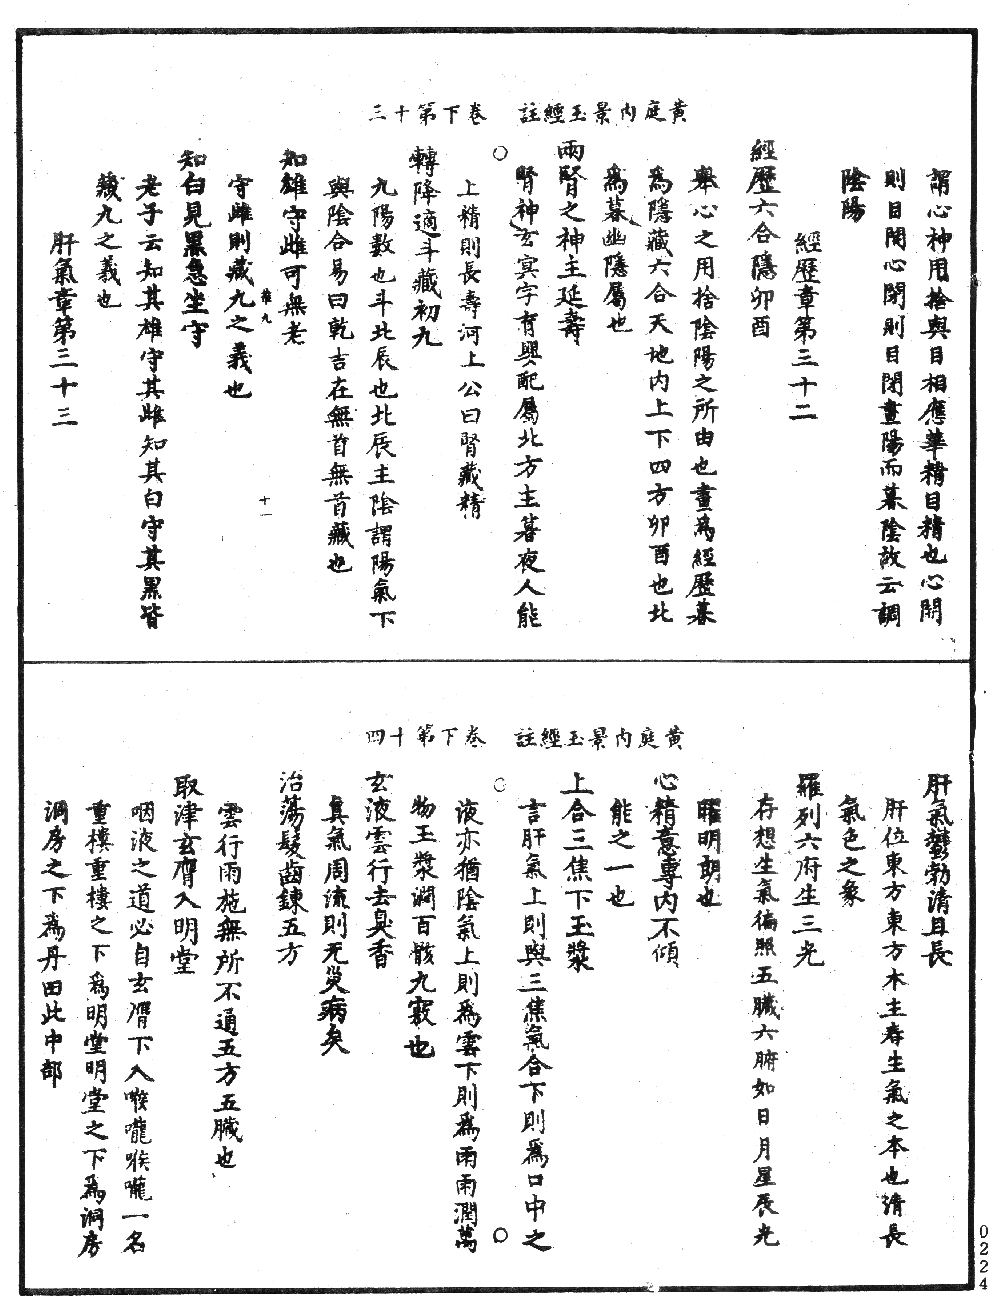 黃庭內景玉經註　卷下第十三
謂心神用捨與目相應華精目精也心開
則目開心閉則目閉晝陽而暮陰故云調
陰陽
經歷章第三十二
經歷六合隱卯酉
舉心之用捨陰陽之所由也晝為經歷暮
為隱藏六合天地內上下四方卯酉也北
為暮幽隱屬也
兩腎之神主延壽
腎神玄冥字育嬰配屬北方主暮夜人能
上精則長壽河上公曰腎藏精
轉降適斗藏初九
九陽數也斗北辰也北辰主陰謂陽氣下
與陰合易曰乾吉在無首無首藏也
知雄守雌可無老
守雌則藏九之義也
雜九
十一
知白見黑急坐守
老子云知其雄守其雌知其白守其黑皆
藏九之義也
肝氣章第三十三
黃庭內景玉經註　卷下第十四
肝氣鬱勃清且長
肝位東方東方木主春生氣之本也清長
氣色之象
羅列六府生三光
存想生氣徧照五臟六腑如日月星辰光
曜明朗也
心精意專內不傾
能之一也
上合三焦下玉漿
言肝氣上則與三焦氣合下則為口中之
液亦猶陰氣上則為雲下則為雨雨潤萬
物玉漿潤百骸九竅也
玄液雲行去臭香
真氣周流則无災病矣
治蕩髮齒鍊五方
雲行雨施無所不通五方五臟也
取津玄膺入明堂
咽液之道必自玄膺下入喉嚨喉嚨一名
重樓重樓之下為明堂明堂之下為洞房
洞房之下為丹田此中部
0224